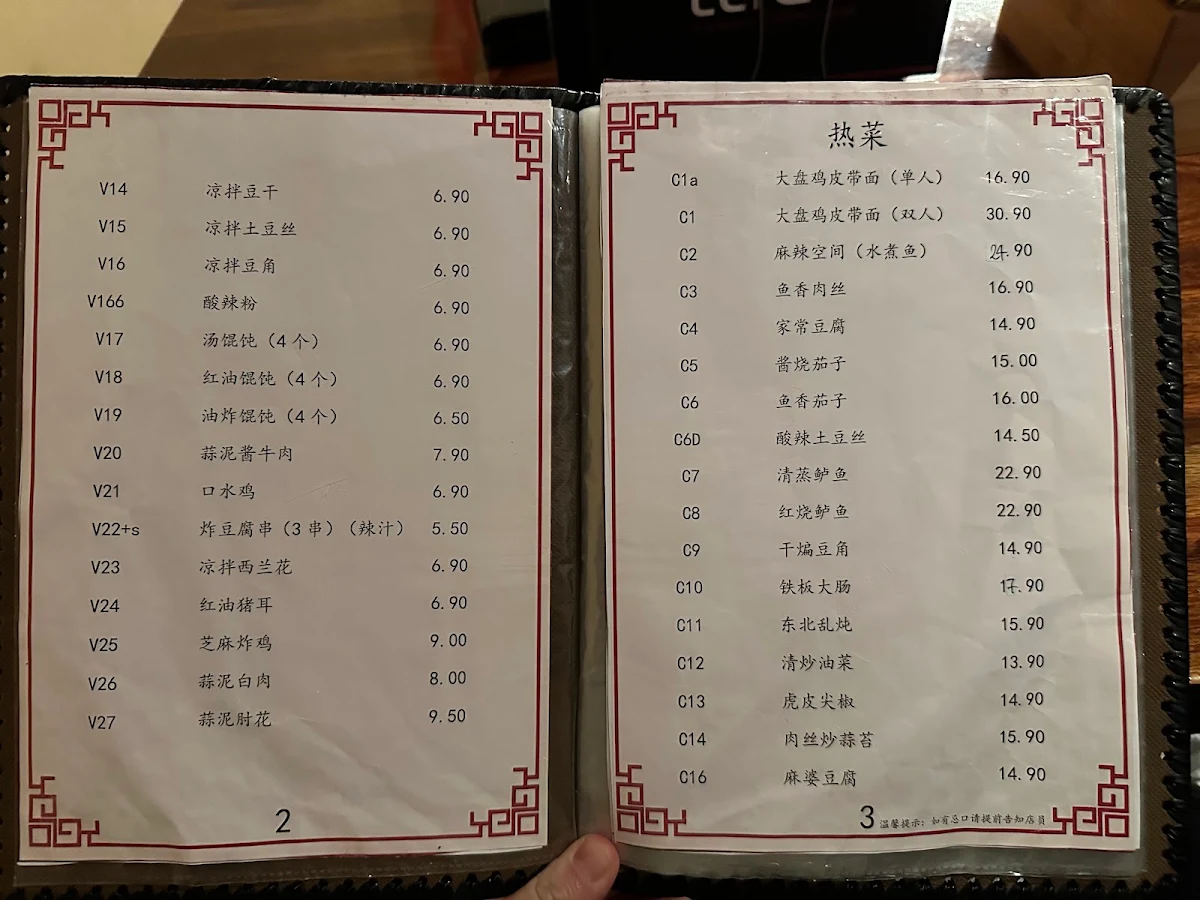 V14 凉拌豆干 6.90
V15 凉拌土豆丝 6.90
V16 凉拌豆角 6.90
V166 酸辣粉 6.90
V17 汤馄饨（4个） 6.90
V18 红油馄饨（4个） 6.90
V19 油炸馄饨（4个） 6.50
V20 蒜泥酱牛肉 7.90
V21 口水鸡 6.90
V22+s 炸豆腐串（3串）（辣汁） 5.50
V23 凉拌西兰花 6.90
V24 红油猪耳 6.90
V25 芝麻炸鸡 9.00
V26 蒜泥白肉 8.00
V27 蒜泥肘花 9.50
2
热菜
C1a 大盘鸡皮带面（单人） 16.90
C1 大盘鸡皮带面（双人） 30.90
C2 麻辣空间（水煮鱼） 24.90
C3 鱼香肉丝 16.90
C4 家常豆腐 14.90
C5 酱烧茄子 15.00
C6 鱼香茄子 16.00
C6D 酸辣土豆丝 14.50
C7 清蒸鲈鱼 22.90
C8 红烧鲈鱼 22.90
C9 干煸豆角 14.90
C10 铁板大肠 17.90
C11 东北乱炖 15.90
C12 清炒油菜 13.90
C13 虎皮尖椒 14.90
C14 肉丝炒蒜苔 15.90
C16 麻婆豆腐 14.90
3 温馨提示：如有忌口请提前告知店员